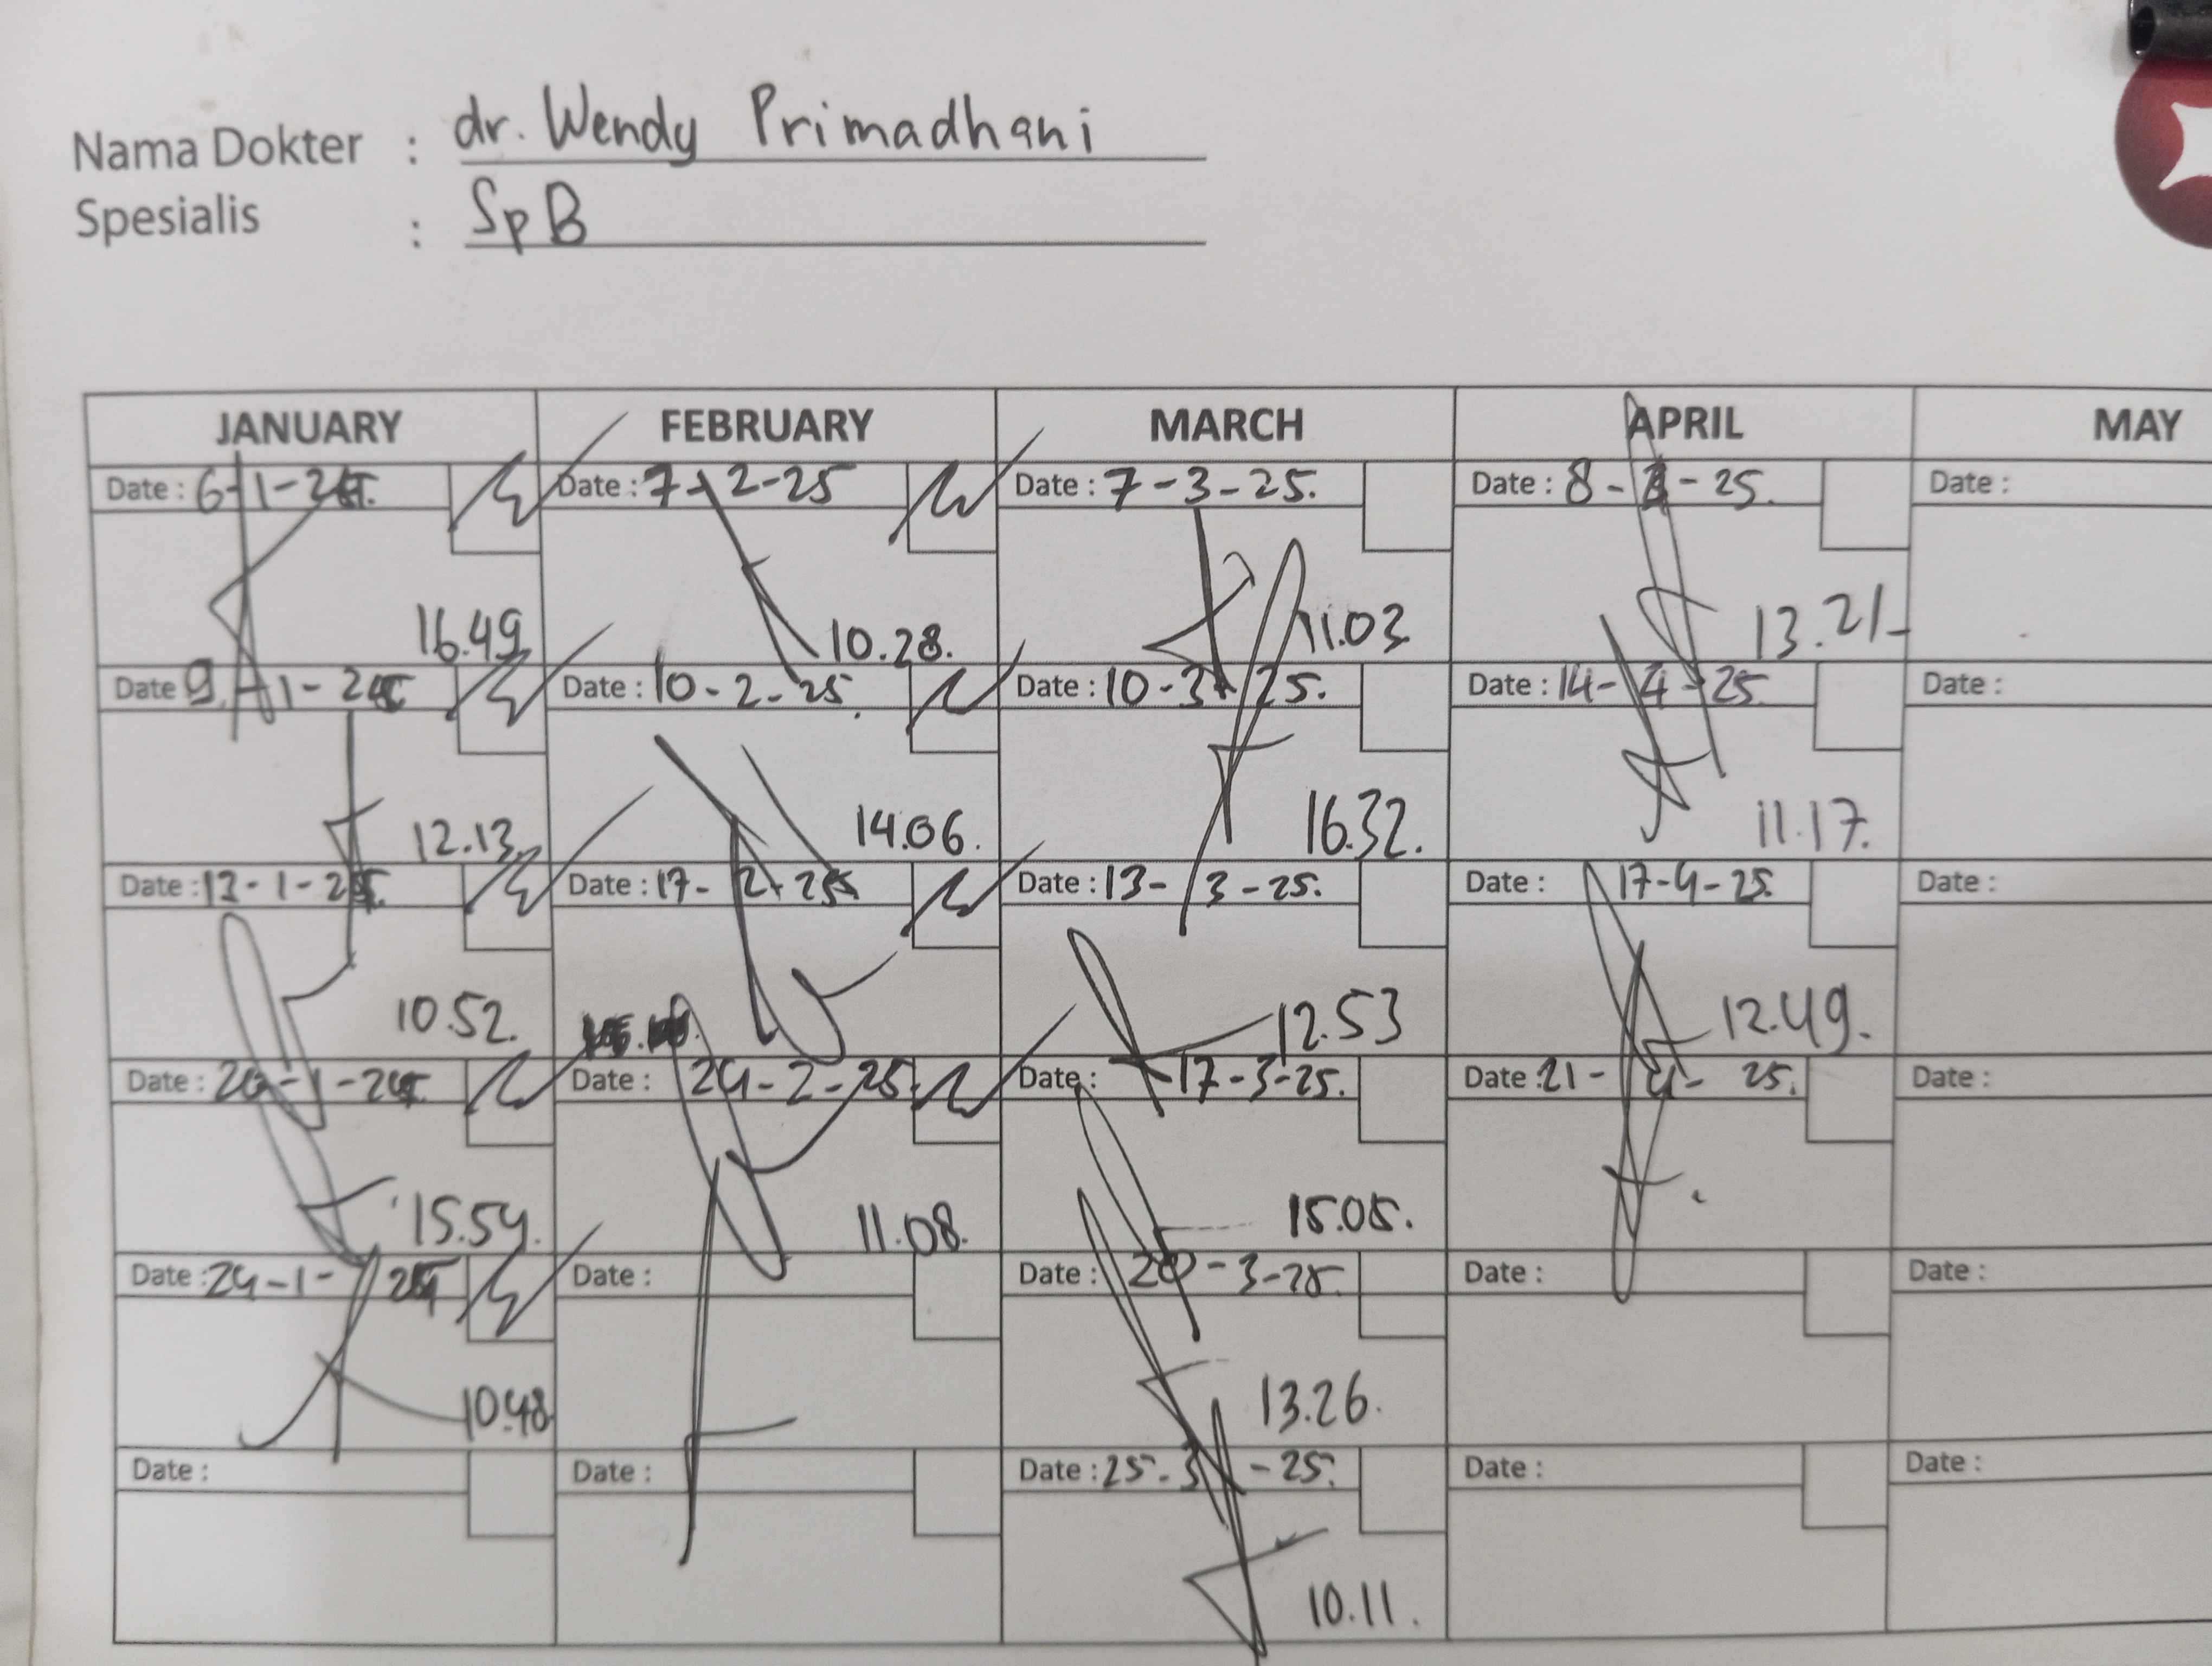 Nama Dokter : dr. Wendy Primadhani
Spesialis : Sp B
JANUARY FEBRUARY MARCH APRIL MAY
Date : 6-1-25. Date : 7-2-25 Date : 7-3-25. Date : 8-4-25. Date :
16.49 10.28. 11.03 13.21
Date 9-1-25 Date : 10-2-25. Date : 10-3-25. Date : 14-4-25. Date :
12.13. 14.06. 16.32. 11.17.
Date : 13-1-25. Date : 17-2-25 Date : 13-3-25. Date : 17-4-25. Date :
10.52. 12.53 12.49.
Date : 20-1-25 Date : 24-2-25. Date : 17-3-25. Date : 21-4-25. Date :
15.54. 11.08. 15.05.
Date : 24-1-25 Date : Date : 20-3-25. Date : Date :
10.48 13.26.
Date : Date : Date : 25-3-25. Date : Date :
10.11.